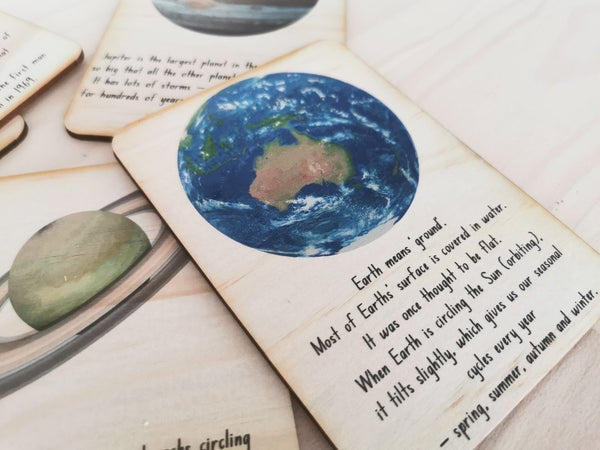 of
not
the first man
in 1969
Jupiter is the largest planet in the
so big that all the other planets
It has lots of storms –
for hundreds of years
Earth means 'ground'.
Most of Earths' surface is covered in water.
It was once thought to be flat.
When Earth is circling the Sun (orbiting),
it tilts slightly, which gives us our seasonal
cycles every year
– spring, summer, autumn and winter.
circling